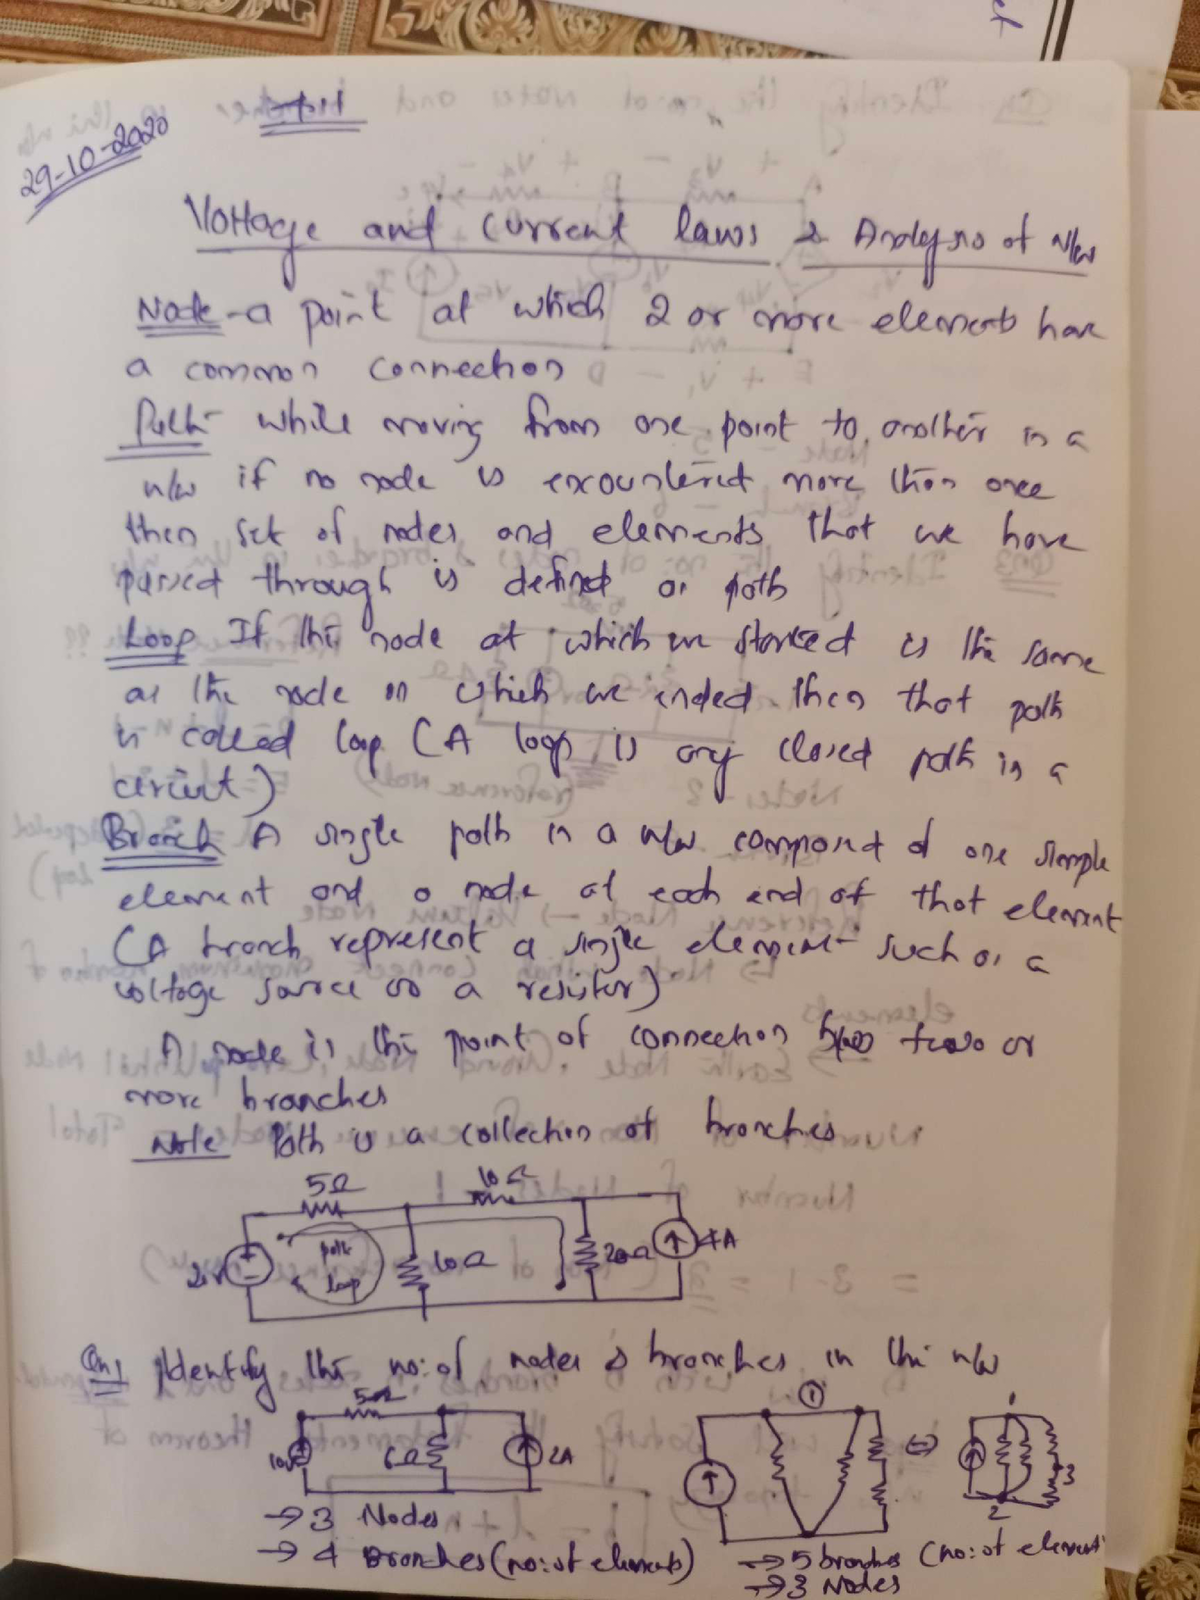 29-10-2020
Voltage and Current laws & Analysis of N/w
Node - a point at which 2 or more elements have
a common connection
Path - while moving from one point to another in a
n/w if no node is encountered more than once
then set of nodes and elements that we have
passed through is defined as path
Loop If the node at which we started is the same
as the node on which we ended then that path
is called loop (A loop is any closed path in a
circuit)
Branch A single path in a n/w composed of one simple
element and a node at each end of that element
(A branch represent a single element such as a
voltage source or a resistor)
A node is the point of connection b/w two or
more branches
Note Path is a collection of branches
5Ω 10Ω
2V path loop 10Ω 20Ω 4A
Qn1 Identify the no: of nodes & branches in the n/w
5Ω 1 1
10V 6Ω 2A 3
2
→ 3 Nodes
→ 4 Branches (no: of elements)
→ 5 branches (no: of elements
→ 3 Nodes